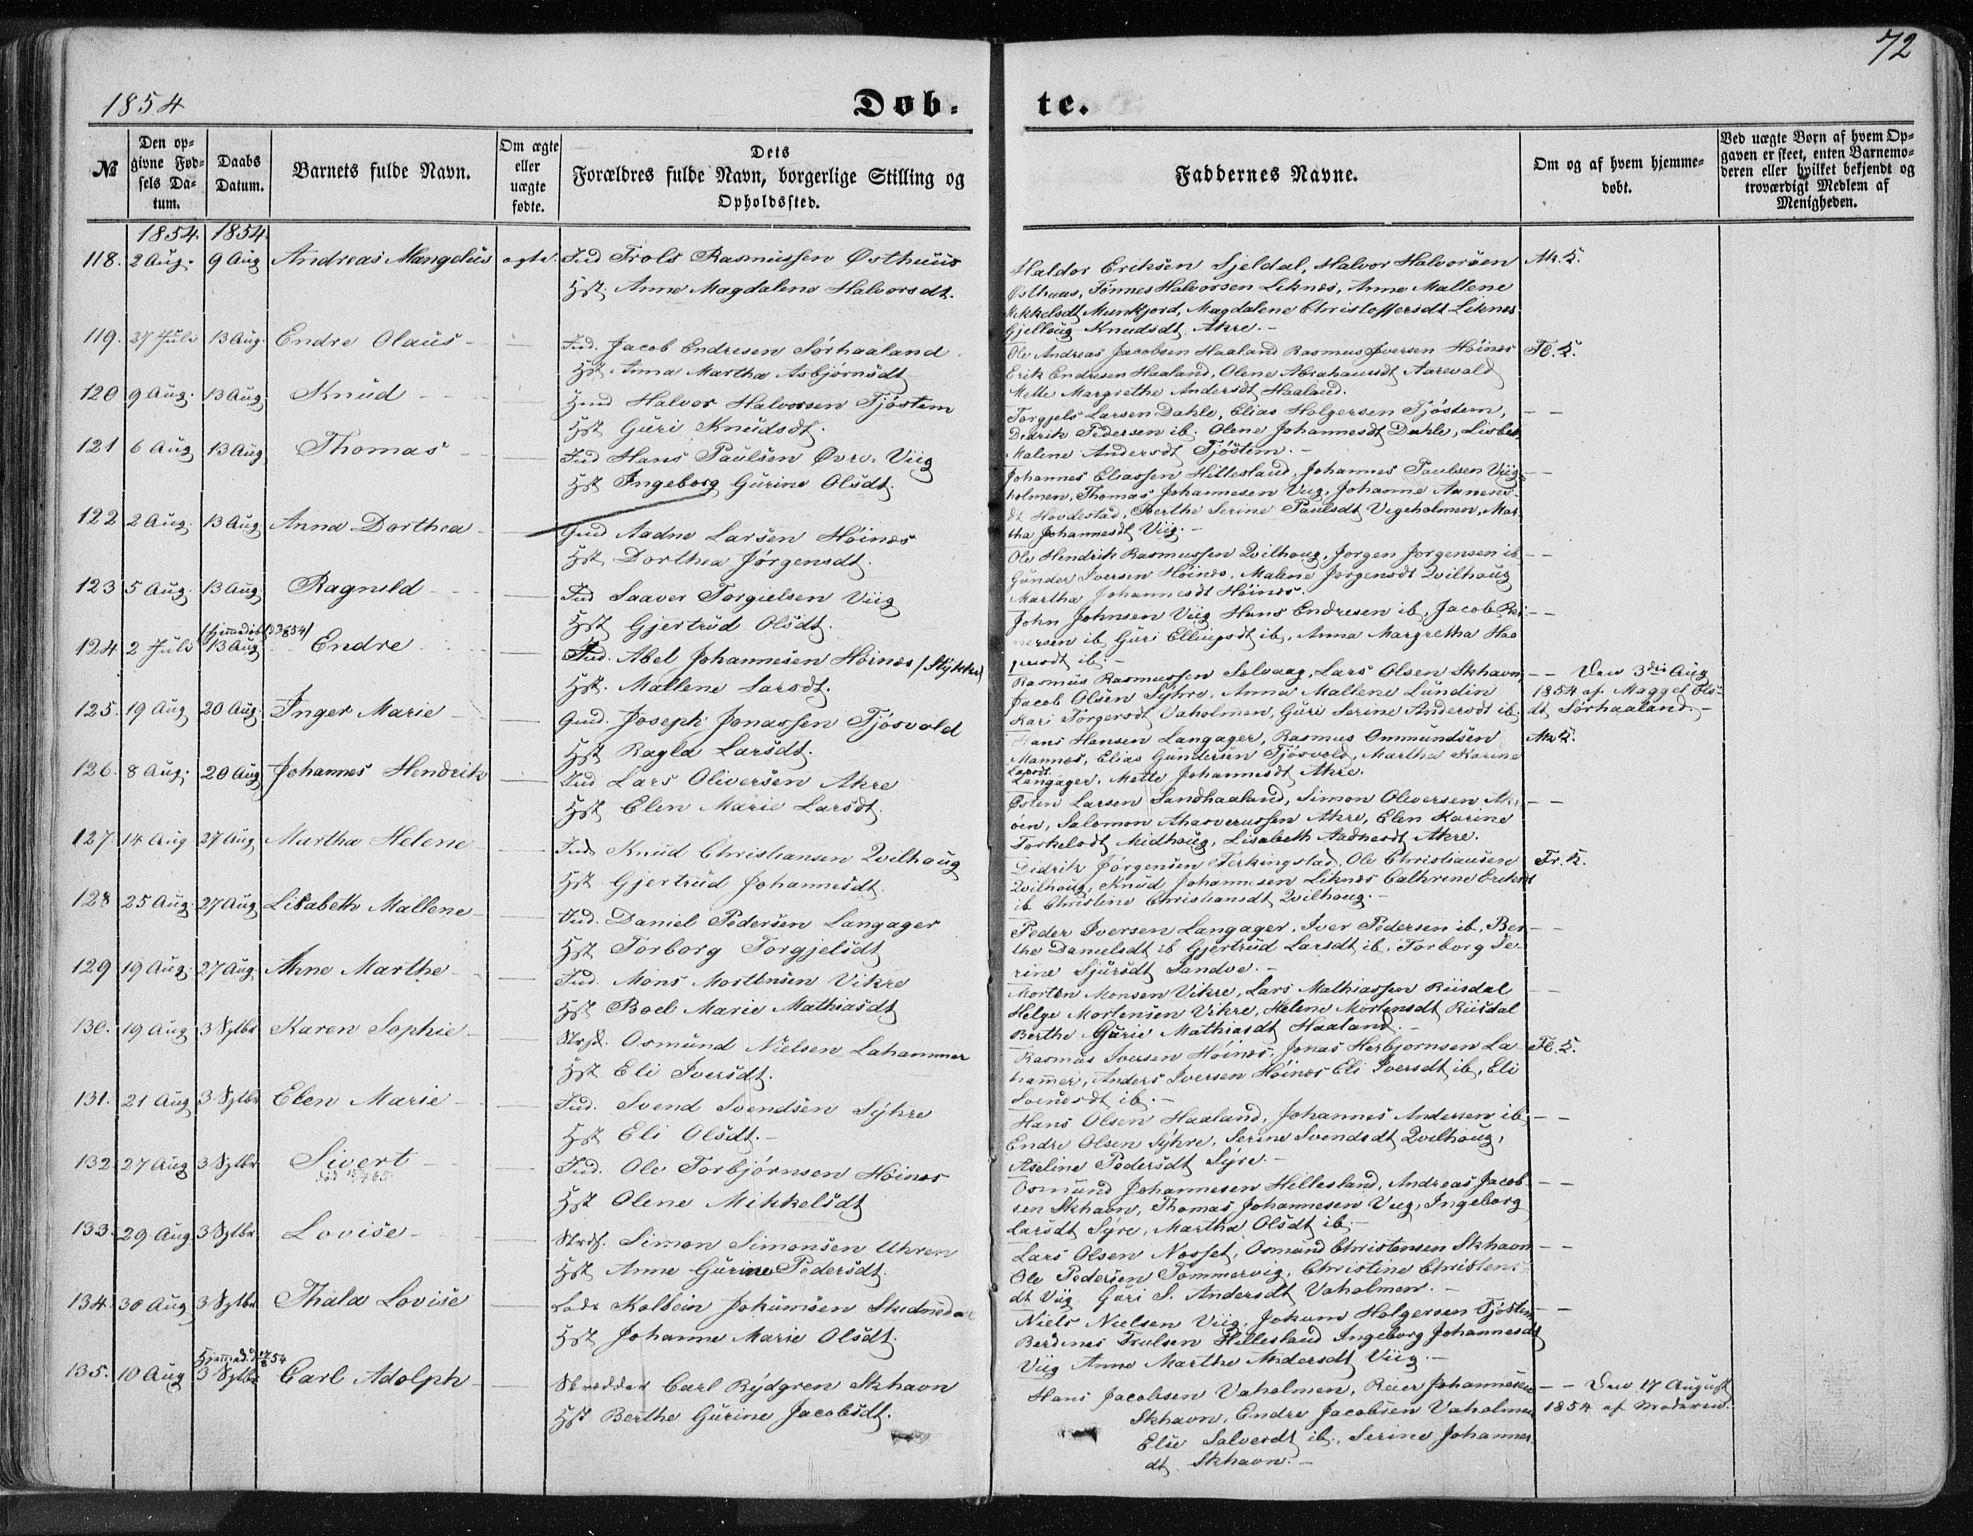 72
1854
Døb-
te.
№
Den op-
givne Fød-
sels Da-
tum.
Daabs
Datum.
Barnets fulde Navn.
Om ægte
eller
uægte
fødte.
Dets
Forældres fulde Navn, borgerlige Stilling og
Opholdssted.
Faddernes Navne.
Om og af hvem hjemme-
døbt.
Ved uægte Børn af hvem Op-
gaven er skeet, enten Barnemo-
deren eller hvilket bekjendt og
troværdigt Medlem af
Menigheden.
1854. 1854.
118. 2 Aug. 9 Aug Andreas Mangelius ægte. Ind Trols Rasmussen Østhuus
Hst. Anne Magdalene Halvorsdt.
Haldor Eriksen Sjeldal, Halvor Halvorsen
Østhuus, Tønnes Halvorsen Liknes, Anne Mallene
Mikkelsdt Munkjord, Magdalene Christoffersdt Liknes
Gjelloug Knudsdt Akre.-
119. 27 Juli 13 Aug. Endre Olaus - Ind. Jacob Endresen Sørhaaland.
Hst Anna Martha Asbjørnsdt
Ole Andreas Jacobsen Haaland Rasmus Iversen Høines
Erik Endresen Haaland, Olene Abrahamsdt Aarevold
Mette Margrethe Andersdt Haaland.
120 9 Aug. 13 Aug. Knud - Halvor Halvorsen Tjøstem
Hst Guri Knudsdt.
Torgjels Larsen Dahle, Elias Holgersen Tjøstem,
Didrik Pedersen ib. Olene Johannesdt Dahle, Lisbet
Malene Andersdt Tjøstem.-
121 6 Aug 13 Aug Thomas - Ind Hans Paulsen Øvre Viig
Hst Ingeborg Gurine Olsdt.
Johannes Eliassen Hillesland, Johannes Paulsen Viig-
holmen, Thomas Johannesen Viig, Johanne Aanens-
dt Hovdestad, Berthe Serine Paulsdt Vegeholmen, Mar-
tha Johannesdt Viig.-
122 2 Aug. 13 Aug Anna Dorthea - Gmd Aadne Larsen Høines
Hst Dorthea Jørgensdt.
Ole Hendrik Rasmussen Qvilhoug, Jørgen Jørgensen ib
Gunder Iversen Høines, Malene Jørgensdt Qvilhoug
Martha Johannesdt Høines.
123 5 Aug. 13 Aug Ragnild - Ind Saaver Torgielsen Viig
Hst Gjertrud Olsdt.
John Johnsen Viig Hans Endresen ib, Jacob Rei-
nersen ib Guri Ellingsdt ib, Anna Margretha Haa
124. 2 Juli 13 Aug Endre - Ind. Abel Johannesen Høines / Stykke)
Hst. Mallene Larsdt.
Rasmus Rasmussen Solvaag, Lars Olsen Skhavn
Jacob Olsen Syhre, Anna Mallene Lundin
Kari Torgersdt Vaholmen, Guri Serine Andersdt ib.
Den 3die Aug
1854 af Maggel Ols-
dt Sørhaaland.-
125. 19 Aug 20 Aug. Inger Marie - Gmd. Joseph Jonassen Tjøsvold
Hst Ragla Larsdt.
Hans Hansen Langager, Rasmus Ommundsen
Mannes, Elias Gundersen Tjøsvold, Martha Karine
Larsdt
Langager, Mette Johannesdt Akre.
126. 8 Aug. 20 Aug Johannes Hendrik Ind Lars Oliversen Akre
Hst Elen Marie Larsdt.
Østen Larsen Sandhaaland, Simon Oliversen Akr-
øen, Salomon Ahasverussen Akre, Elen Karine
Torkelsdt Midhoug, Lisabeth Aadnesdt Akre.
127. 14 Aug 27 Aug Martha Helene - Ind. Knud Christiansen Qvilhoug
Hst Gjertrud Johannesdt.
Didrik Jørgensen Ferkingstad, Ole Christiansen
Qvilhoug, Knud Johannesen Liknes Cathrine Eriksdt
ib Christine Christiansdt Qvilhoug.-
128 25 Aug. 27 Aug Lisabeth Mallene - Ind. Daniel Pedersen Langager
Hst Torborg Torgjelsdt
Peder Iversen Langager, Iver Pedersen ib, Ber-
the Danielsdt ib Gjertrud Larsdt ib, Torborg Se-
rine Sjursdt Sandve.-
129 19 Aug. 27 Aug. Anne Marthe - Ind. Mons Mortensen Vikre
Hst Boel Marie Mathiasdt
Morten Monsen Vikre, Lars Mathiassen Riisdal
Helge Mortensen Vikre, Helene Mortensdt Riisdal
Berthe Gurie Mathiasdt Haaland.-
130. 19 Aug 3 Sptbr Karen Sophie - Osmund Nielsen Lahammer
Hst Eli Iversdt.
Rasmus Iversen Høines, Jonas Herbjørnsen La-
hammer, Anders Iversen Høines Eli Iversdt ib, Eli
Svendsdt ib.-
131. 21 Aug 3 Sptbr Elen Marie - Ind. Svend Svendsen Syhre
Hst Eli Olsdt.-
Hans Olsen Haaland, Johannes Andersen ib,
Endre Olsen Syhre, Serine Svendsdt Qvilhoug,
Aseline Pedersdt Syre.-
132 27 Aug 3 Sptbr Sivert - Ind. Ole Torbjørnsen Høines
Hst Olene Mikkelsdt
Osmund Johannesen Hillesland, Andreas Jacob-
sen Skhavn, Thomas Johannesen Viig, Ingeborg
Larsdt Syre, Martha Olsdt ib.-
133. 29 Aug 3 Sptbr. Lovise - Simon Simonsen Uhren
Hst Anne Gurine Pedersdt.
Lars Olsen Nosset, Osmund Christensen Skhavn
Ole Pedersen Tømmervig, Christine Christens-
dt Viig Guri S. Andersdt Vaholmen.-
134. 30 Aug 3 Sptbr. Thala Lovise Kolbein Johansen
Hst Johanne Marie Olsdt.
Niels Nielsen Viig, Johan Holgersen Tjøstem
Berdines Trulsen Hillesland Ingeborg Johannesdt
Viig Anne Marthe Andersdt Viig.-
135. 10 Aug 3 Sptbr Carl Adolph - Skrædder Carl Rydgren Skhavn
Hst Berthe Gurine Jacobsdt.
Hans Jacobsen Vaholmen, Reier Johannesen
Skhavn, Endre Jacobsen Vaholmen
Else Salvesdt ib., Serine Johannes-
dt Skhavn.-
Den 17 August
1854 af Moderen.